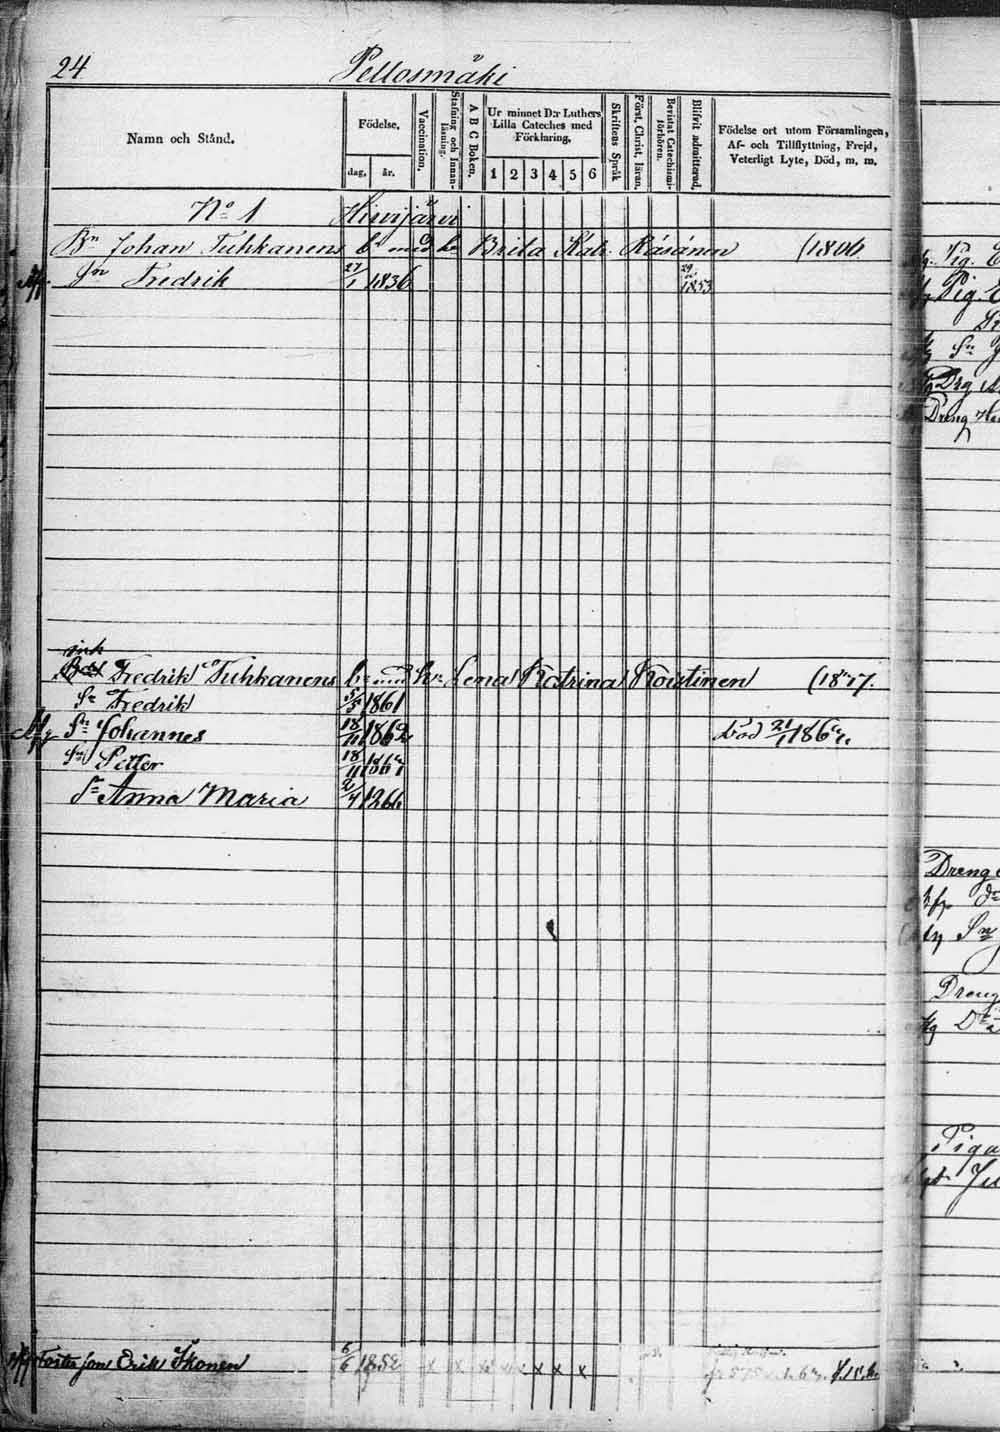 24 Pellosmäki
Namn och Stånd.
Födelse,
dag, år.
Vaccination.
Stafning och Innan-läsning.
A B C Boken.
Ur minnet D:r Luthers
Lilla Cateches med
Förklaring,
1 2 3 4 5 6
Skriftens Språk
Först. Christ. läran.
Bevistat Catechismi-förhören.
Blifvit admitterad,
Födelse ort utom Församlingen,
Af- och Tillflyttning, Frejd,
Veterligt Lyte, Död, m. m.
No 1 Hirvijärvi
Bn Johan Tuhkanens bn med hn Brita Katr. Räsänen (1806
Sn Fredrik 27/1 1836 1853
ink
Fredrik Tuhkanens bn med hn Lena Katrina Koistinen
Sn Fredrik 5/5 1861
Sn Johannes 18/11 1862 Död 21/1
Sn Petter 18/11
Sn Anna Maria 2/4 1866
Fosterson Erik Ikonen 6/6 1852 x x x x x x x
Pig.
Pig.
Sn
Drg
Dreng
Dreng
Sn
Dreng
Piga